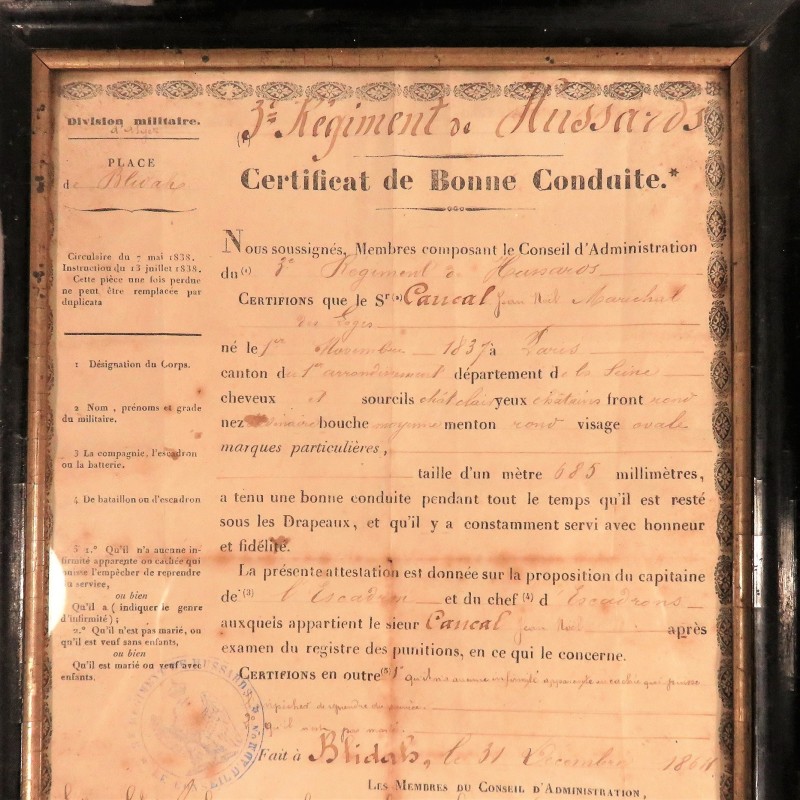 3e Régiment de Hussards
Division militaire.
d'Alger
PLACE
de Blidah
Certificat de Bonne Conduite.*
Circulaire du 7 mai 1838.
Instruction du 13 juillet 1838.
Cette pièce une fois perdue
ne peut être remplacée par
duplicata
1 Désignation du Corps.
2 Nom, prénoms et grade
du militaire.
3 La compagnie, l'escadron
ou la batterie.
4 De bataillon ou d'escadron
5 1.° Qu'il n'a aucune in-
firmité apparente ou cachée qui
puisse l'empêcher de reprendre
du service,
ou bien
Qu'il a (indiquer le genre
d'infirmité);
2.° Qu'il n'est pas marié, ou
qu'il est veuf sans enfants,
ou bien
Qu'il est marié ou veuf avec
enfants.
Nous soussignés, Membres composant le Conseil d'Administration
du (1) 3e Régiment de Hussards
Certifions que le Sr (2) Caucal Jean Maréchal
des Logis
né le 1er Novembre 1837 à Paris
canton du 1er arrondissement département de la Seine
cheveux et sourcils chât clair yeux châtains front rond
nez ordinaire bouche moyenne menton rond visage ovale
marques particulières,
taille d'un mètre 685 millimètres,
a tenu une bonne conduite pendant tout le temps qu'il est resté
sous les Drapeaux, et qu'il y a constamment servi avec honneur
et fidélité.
La présente attestation est donnée sur la proposition du capitaine
de (3) l'Escadron et du chef (4) d'Escadrons
auxquels appartient le sieur Caucal Jean après
examen du registre des punitions, en ce qui le concerne.
Certifions en outre (5) 1° qu'il n'a aucune infirmité apparente ou cachée qui puisse
l'empêcher de reprendre du service.
2° qu'il n'est pas marié.
Fait à Blidah, le 31 Décembre
Les Membres du Conseil d'Administration,